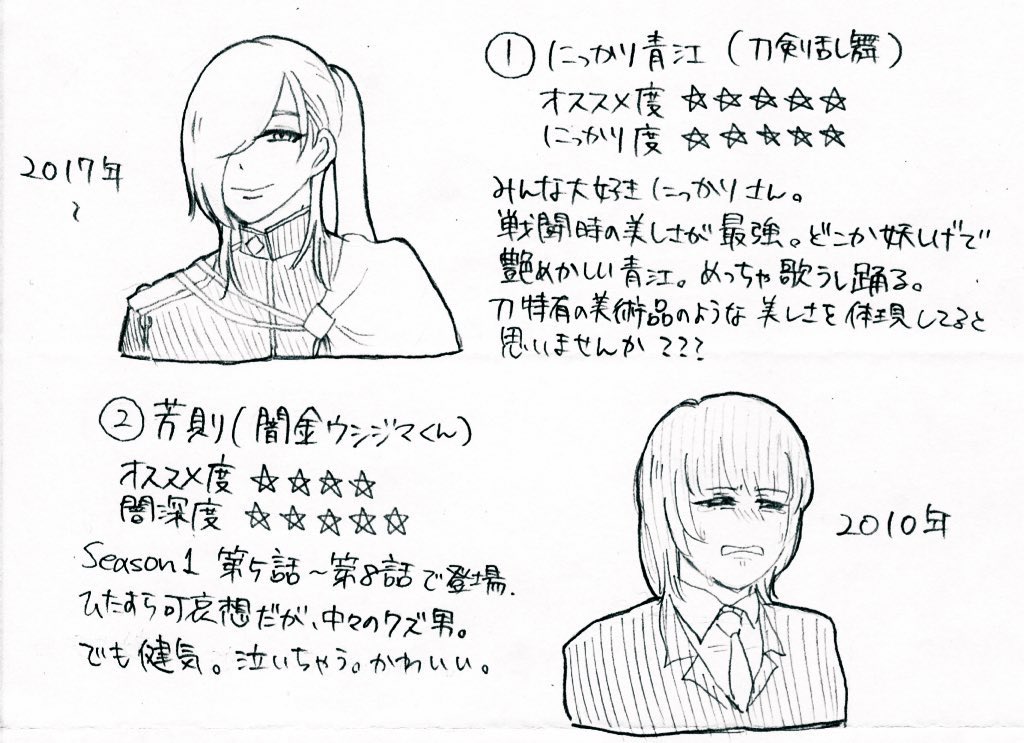 ① にっかり青江 (刀剣乱舞)
オススメ度 ☆☆☆☆☆
にっかり度 ☆☆☆☆☆
2017年
~
みんな大好きにっかりさん。
戦闘時の美しさが最強。どこか妖しげで
艶めかしい青江。めっちゃ歌うし踊る。
刀特有の美術品のような美しさを体現してると
思いませんか???
② 芳則(闇金ウシジマくん)
オススメ度 ☆☆☆☆
闇深度 ☆☆☆☆☆
Season1 第5話~第8話で登場.
ひたすら可哀想だが、中々のクズ男。
でも健気。泣いちゃう。かわいい。
2010年